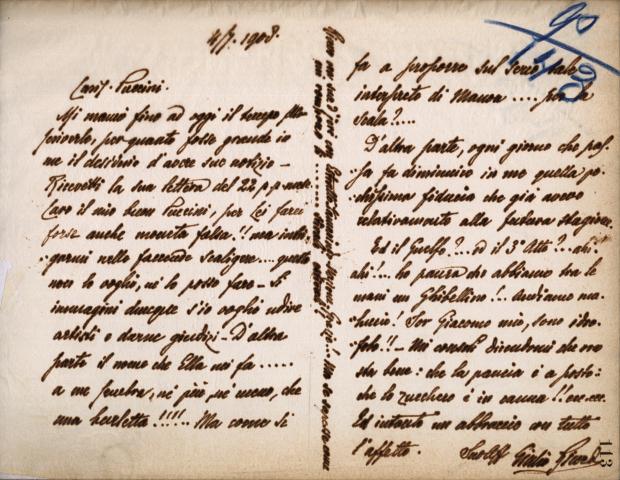 4/7. 1908.
Caris. Puccini.
Mi mancò fino ad oggi il tempo per
scriverle, per quanto fosse grande in
me il desiderio d'avere sue notizie –
Ricevetti la sua lettera del 22 p.p. mese.
Caro il mio buon Puccini, per Lei farei
forse anche moneta falsa!! ma intri-
garmi nelle faccende scaligere.... questo
non lo voglio, nè lo posso fare – Si
immagini dunque s'io voglio udire
artisti o darne giudizi – D'altra
parte il nome che Ella mi fa .....
a me sembra, nè più, nè meno, che
una burletta!!!!.. Ma come si
fa a proporre sul serio tale
interprete di Manon .... per la
Scala?...
D'altra parte, ogni giorno che pas-
sa fa diminuire in me quella po-
chissima fiducia che già avevo
relativamente alla futura stagione.
Ed il Guelfo?... ed il 3º Atto?... ahi
ahi!... ho paura che abbiamo tra le
mani un Ghibellino!...
Ser Giacomo mio, sono idro-
folo!! – Mi consoli dicendomi che ora
sta bene: che la pancia è a posto:
che lo zucchero è in canna!! ecc. ecc.
Ed intanto un abbraccio con tutto
l'affetto.
Suo Aff Giulio Ricordi
113